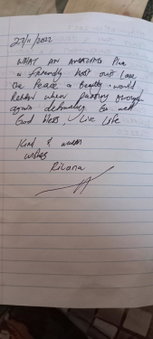 27/11/2022
WHAT AN AMAZING Place
a friendly host out Look
the Peace & Beauty would
Return when passing through
again definately be well
God bless, Live Life
Kind & warm
wishes
Rilana